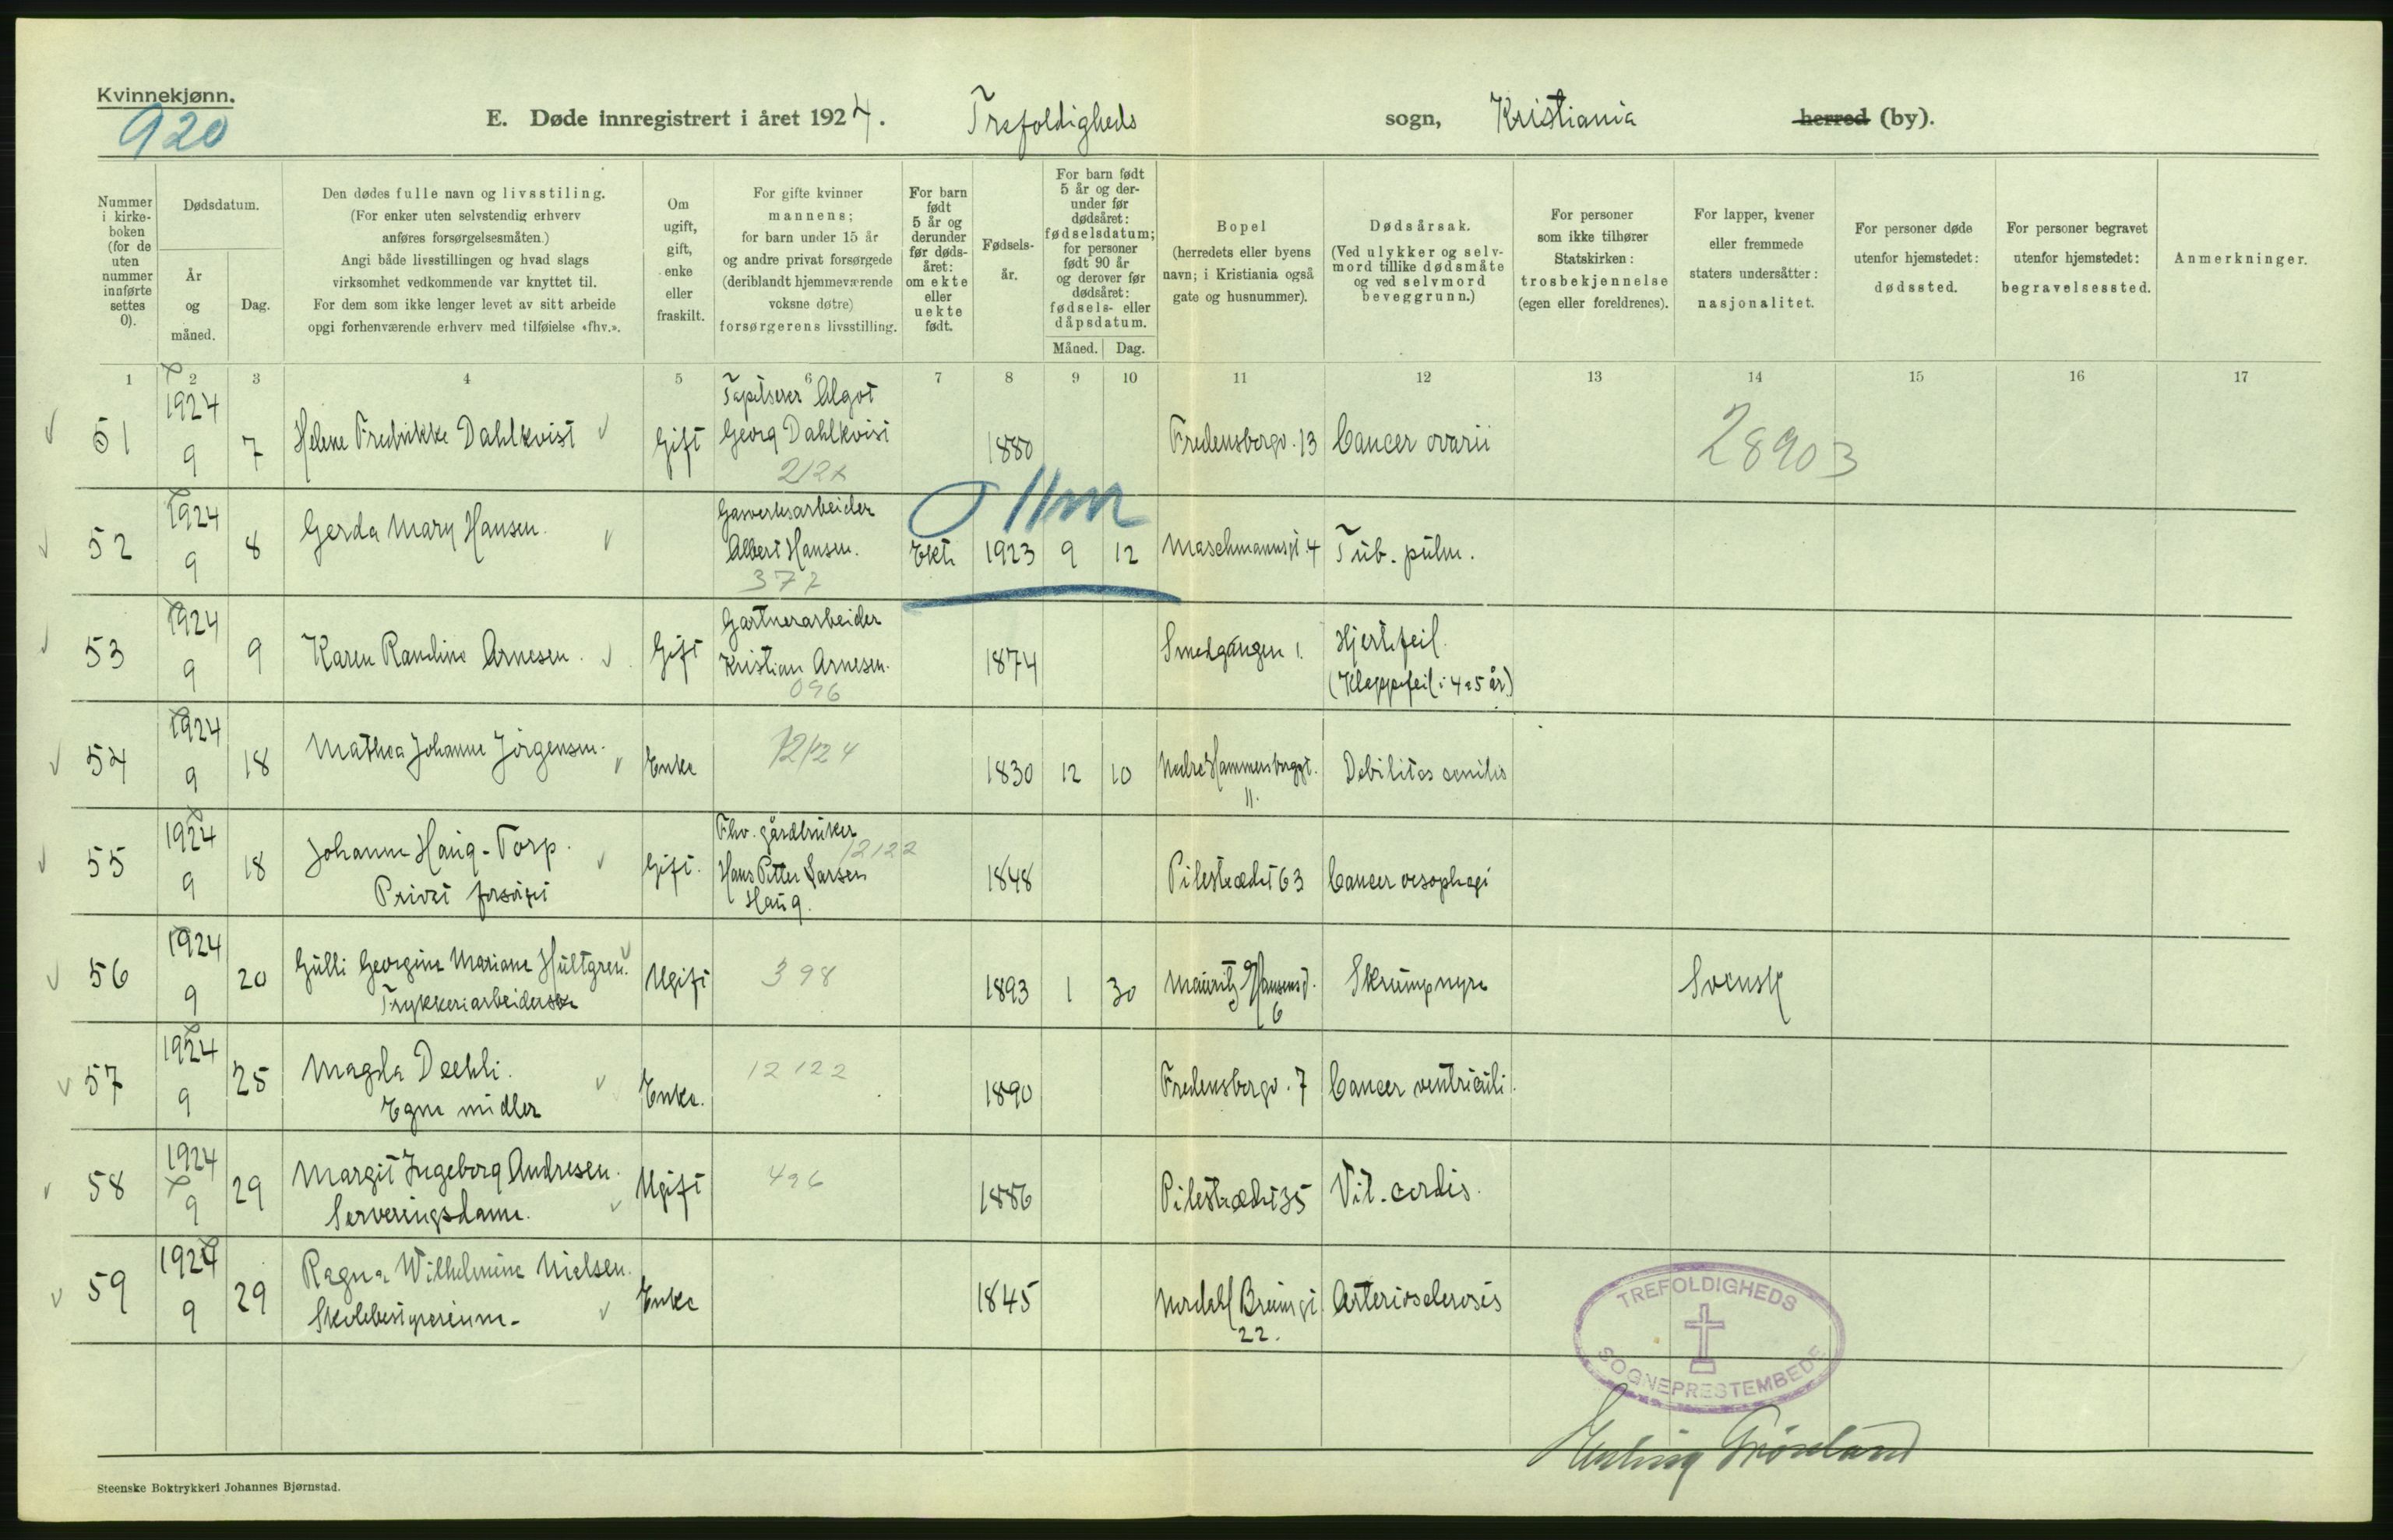 Kvinnekjønn.
920
E. Døde innregistrert i året 1924. Trefoldigheds sogn, Kristiania herred (by).
Nummer i kirkeboken (for de uten nummer innførte settes 0).
Dødsdatum.
År og måned.
Dag.
Den dødes fulle navn og livsstiling.
(For enker uten selvstendig erhverv
anføres forsørgelsesmåten.)
Angi både livsstillingen og hvad slags
virksomhet vedkommende var knyttet til.
For dem som ikke lenger levet av sitt arbeide
opgi forhenværende erhverv med tilføielse «fhv.».
Om ugift, gift, enke eller fraskilt.
For gifte kvinner
mannens;
for barn under 15 år
og andre privat forsørgede
(deriblandt hjemmeværende
voksne døtre)
forsørgerens livsstilling.
For barn født 5 år og derunder før dødsåret: om ekte eller uekte født.
Fødselsår.
For barn født 5 år og derunder før dødsåret: fødselsdatum; for personer født 90 år og derover før dødsåret: fødsels- eller dåpsdatum.
Måned. Dag.
Bopel
(herredets eller byens
navn; i Kristiania også
gate og husnummer).
Dødsårsak.
(Ved ulykker og selvmord tillike dødsmåte
og ved selvmord
beveggrunn.)
For personer
som ikke tilhører
Statskirken:
trosbekjennelse
(egen eller foreldrenes).
For lapper, kvener
eller fremmede
staters undersåtter:
nasjonalitet.
For personer døde
utenfor hjemstedet:
dødssted.
For personer begravet
utenfor hjemstedet:
begravelsessted.
Anmerkninger.
1 2 3 4 5 6 7 8 9 10 11 12 13 14 15 16 17
51 1924 9 7 Helene Fredrikke Dahlkvist Gift Tapetserer Algot Georg Dahlkvist 212x 1880 Fredensborgv. 13 Cancer ovarii 28903
52 1924 9 8 Gerda Mary Hansen. Gasverksarbeider Albert Hansen. 372 Ekte 1923 9 12 Maschmannsgt. 4 Tub. pulm.
0 11m
53 1924 9 9 Karen Randine Arnesen. Gift Gartnerarbeider Kristian Arnesen. 096 1874 Smedgangen 1. Hjertefeil. (Klappefeil i 4 a 5 år)
54 1924 9 18 Mathea Johanne Jörgensen. Enke 12124 1830 12 10 Nedre Hammersborggt. 11. Debilitas senilis
55 1924 9 18 Johanne Haug-Torp. Privat forsörget Gift. Fhv. gårdbruker Hans Petter Larsen Haug. 12122 1848 Pilestrædet 63 Cancer oesophagi
56 1924 9 20 Gulli Georgine Mariane Hultgren. Trykkeriarbeiderske Ugift 398 1893 1 30 Mauritz Hansens g. 6 Skrumpnyre Svensk
57 1924 9 25 Magda Deehli. Egne midler Enke. 12122 1890 Fredensborgv. 7 Cancer ventriculi.
58 1924 9 29 Margit Ingeborg Andresen. Serveringsdame. Ugift 426 1886 Pilestrædet 35 Vit. cordis.
59 1924 9 29 Ragna Wilhelmine Nielsen. Skolebestyrerinne. Enke 1845 Nordahl Brunsgt 22. Arteriosclerosis
TREFOLDIGHEDS
SOGNEPRESTEMBEDE
Erling Grönland
Steenske Boktrykkeri Johannes Bjørnstad.